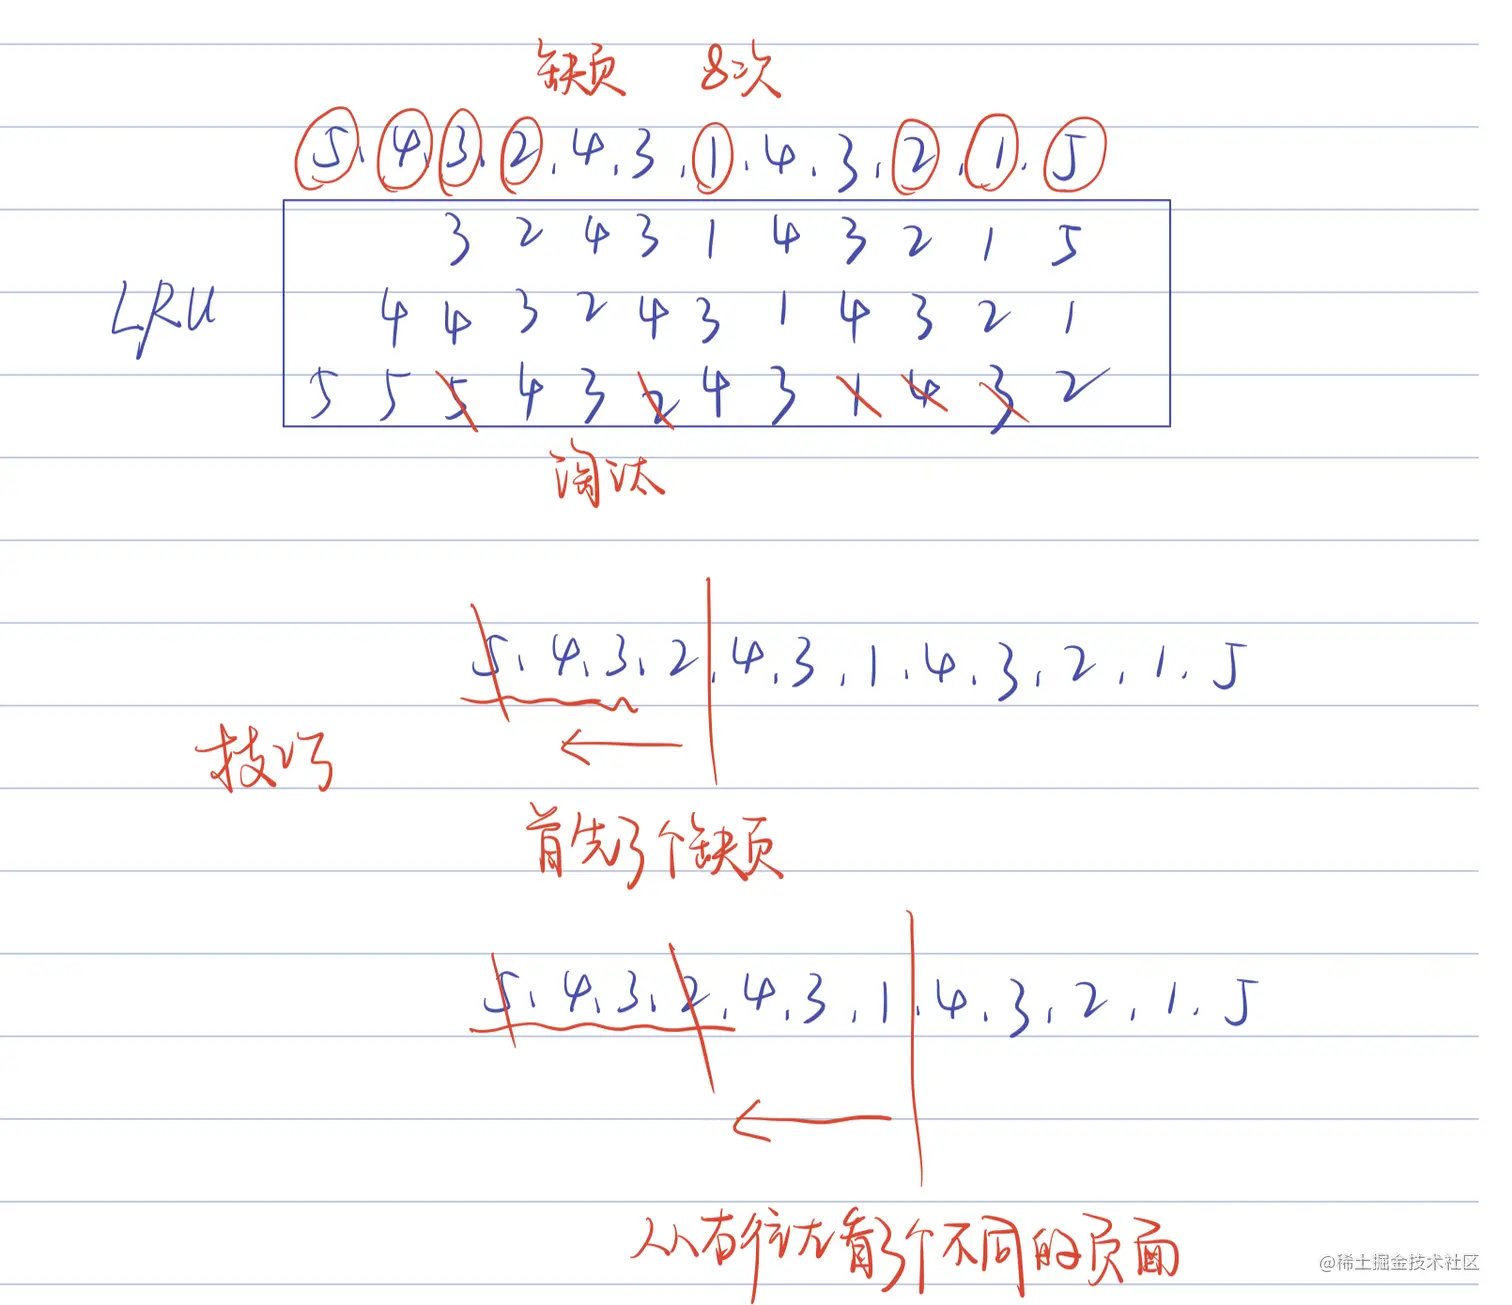 缺页 8次
5.4.3.2.4.3.1.4.3.2.1.5
3 2 4 3 1 4 3 2 1 5
LRU
4 4 3 2 4 3 1 4 3 2 1
5 5 5 4 3 2 4 3 1 4 3 2
淘汰
5.4.3.2.4.3.1.4.3.2.1.5
技巧
首先3个缺页
5.4.3.2.4.3.1.4.3.2.1.5
从右往左看3个不同的页面
@稀土掘金技术社区